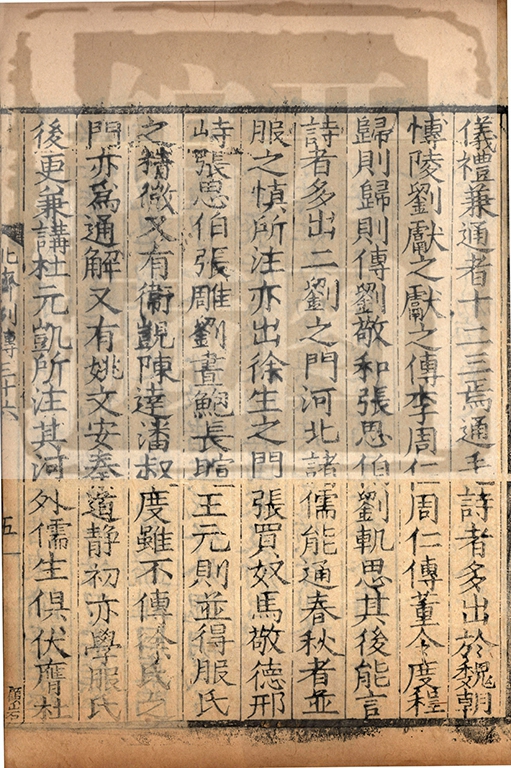 儀禮兼通者十二三焉通毛詩者多出於魏朝
慱陵劉獻之獻之傳李周仁周仁傳董令度程
歸則歸則傳劉敬和張思伯劉軌思其後能言
詩者多出二劉之門河北諸儒能通春秋者並
服之慎所注亦出徐生之門張買奴馬敬德邢
峙張思伯張雕劉晝鮑長暄王元則並得服氏
之精微又有衛覬陳達潘叔度雖不傳徐氏之
門亦為通解又有姚文安秦道静初亦學服氏
後更兼講杜元凱所注其河外儒生俱伏膺杜
北齊列傳三十六
五